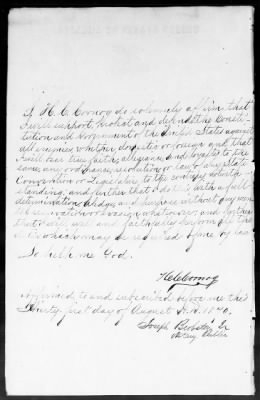 I H. C. Cornog do solemnly affirm that
I will support, protect and defend the Consti-
tution and Government of the United States against
all enemies, whether domestic or foreign and that
I will bear true faith, allegiance and loyalty to the
same, any ordinance, resolution or law of any State
Convention or Legislature to the contrary notwith-
standing; and further that I do this with a full
determination, pledge and purpose without any men-
tal reservation or evasion whatsoever, and further
that I will well and faithfully perform all the
which may be required of me by law
So help me God.
H C Cornog
Affirmed to and subscribed before me this
thirty first day of August A.D. 1870.
Joseph Jr
Notary Public